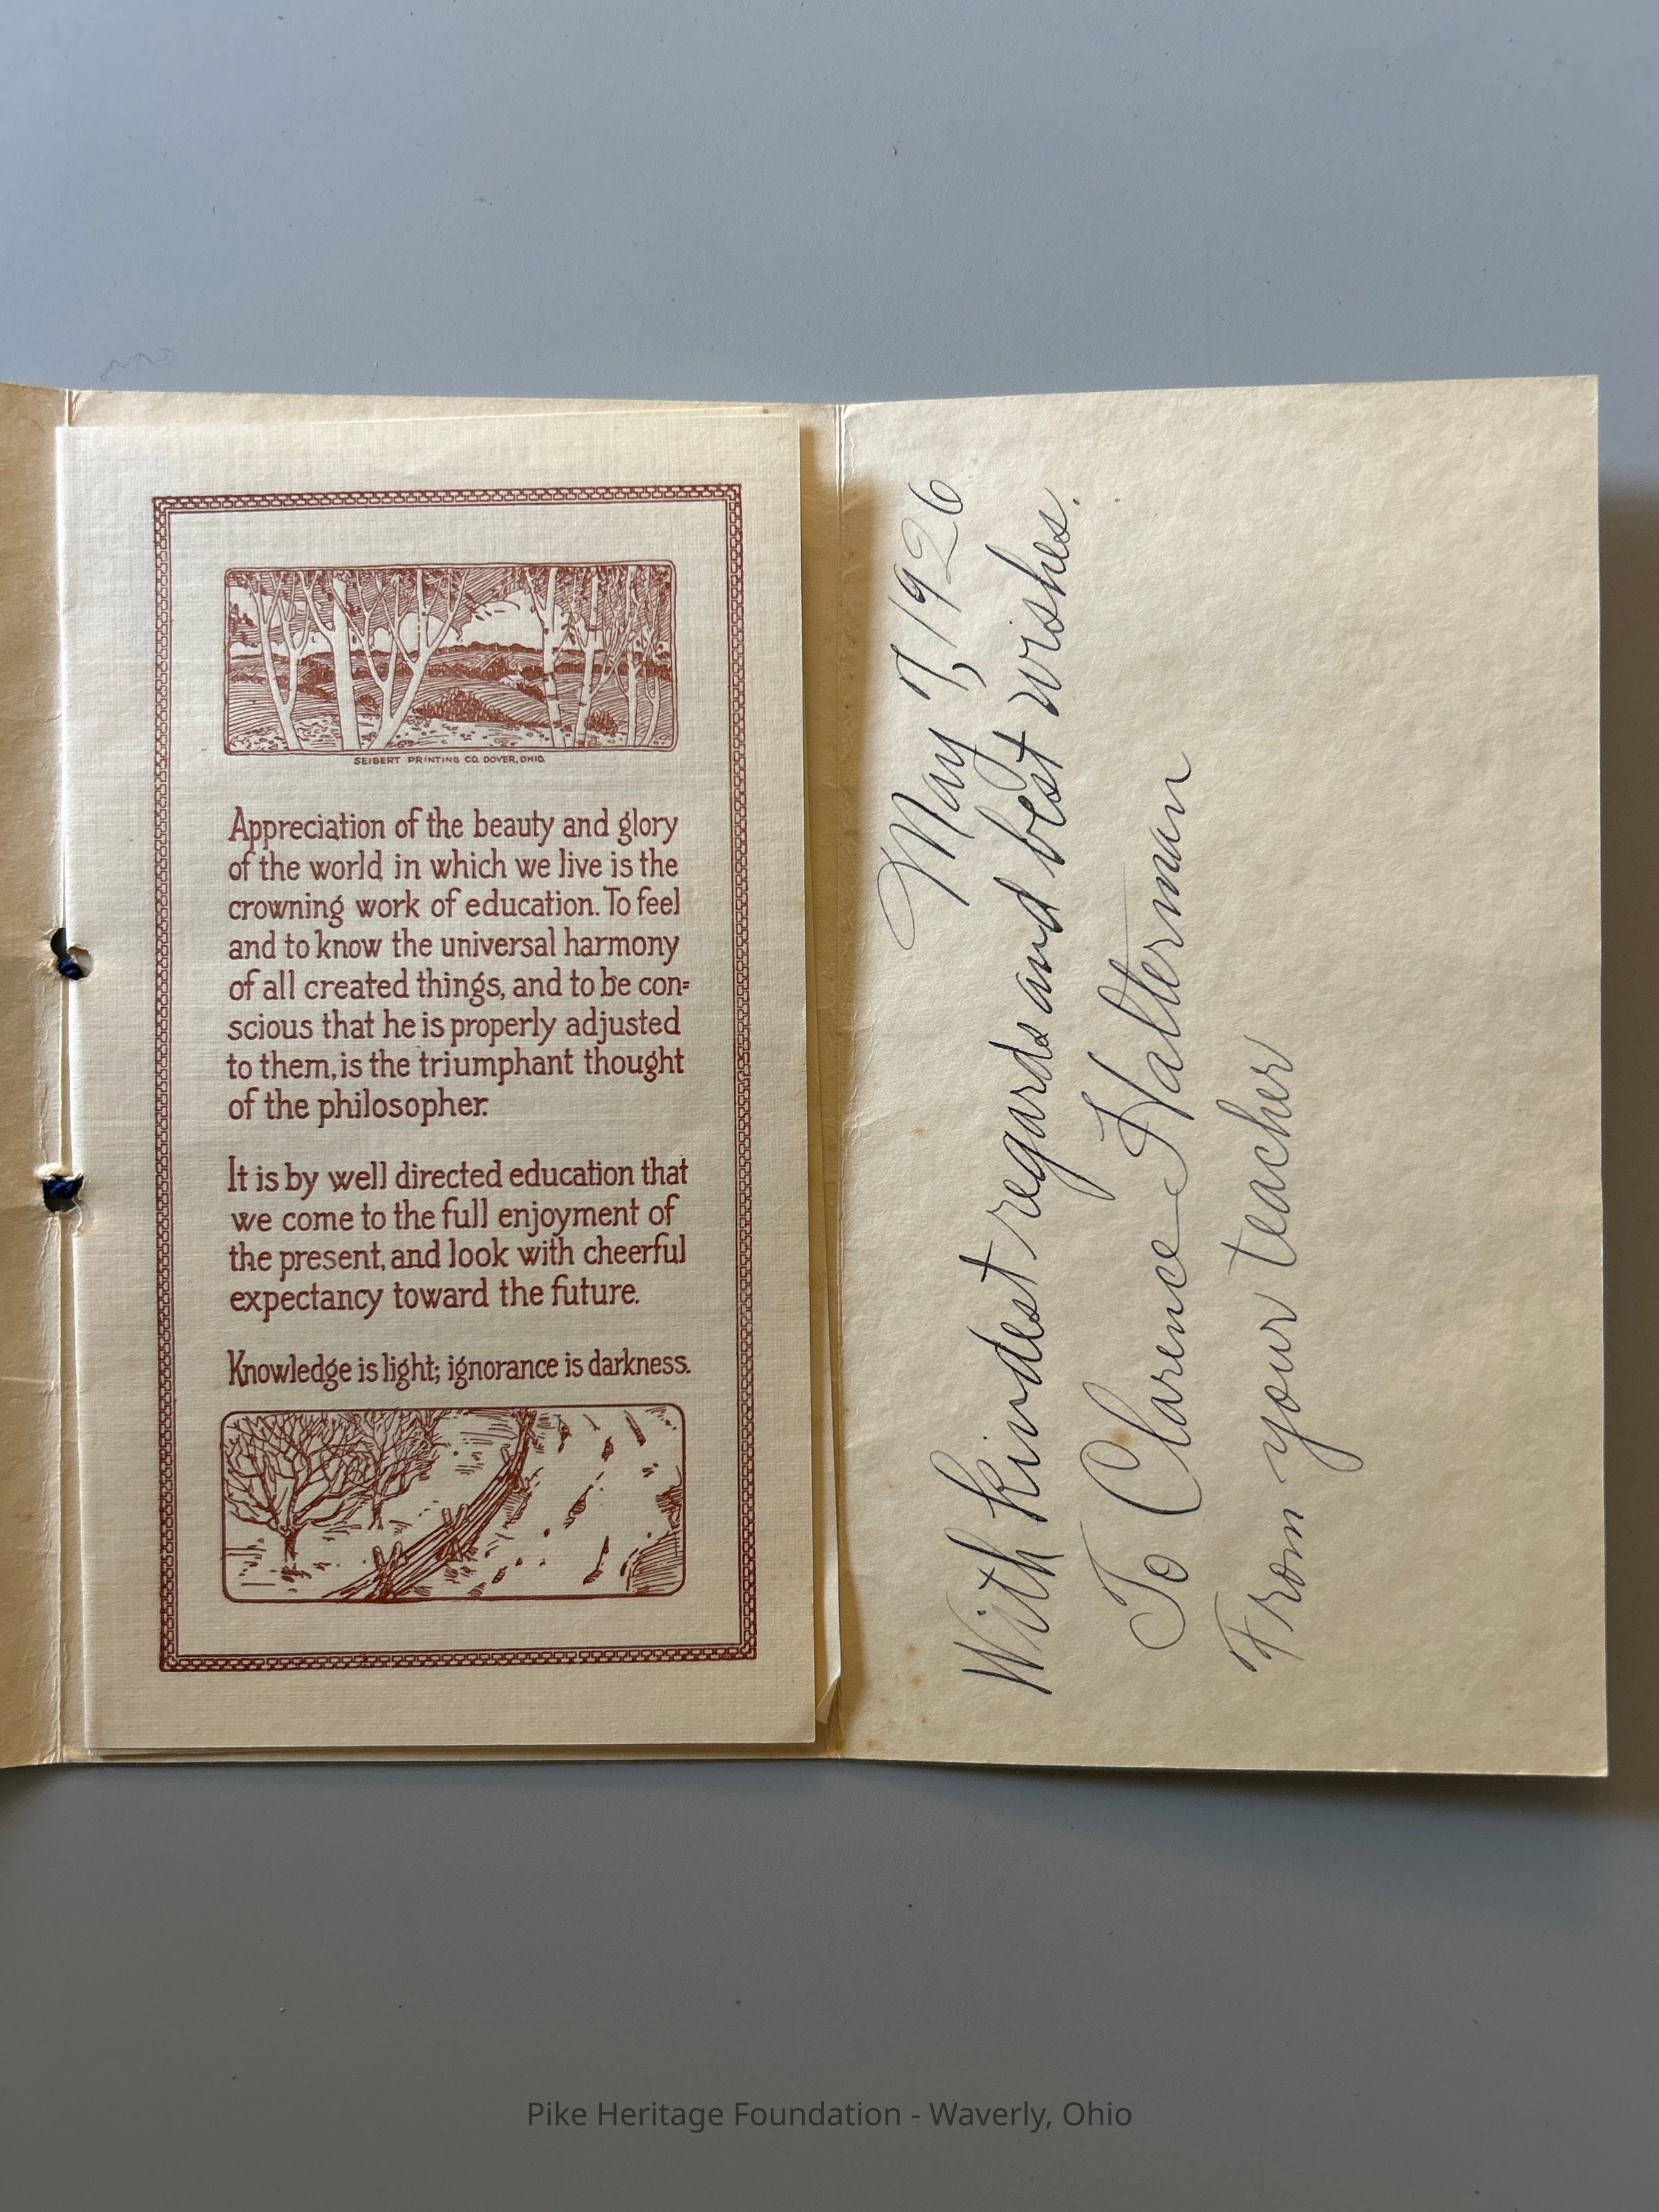 SEIBERT PRINTING CO. DOVER, OHIO.
Appreciation of the beauty and glory
of the world in which we live is the
crowning work of education. To feel
and to know the universal harmony
of all created things, and to be con=
scious that he is properly adjusted
to them, is the triumphant thought
of the philosopher.
It is by well directed education that
we come to the full enjoyment of
the present, and look with cheerful
expectancy toward the future.
Knowledge is light; ignorance is darkness.
May 7, 1926
With kindest regards and best wishes.
To Clarence Halterman
From your teacher
Pike Heritage Foundation - Waverly, Ohio